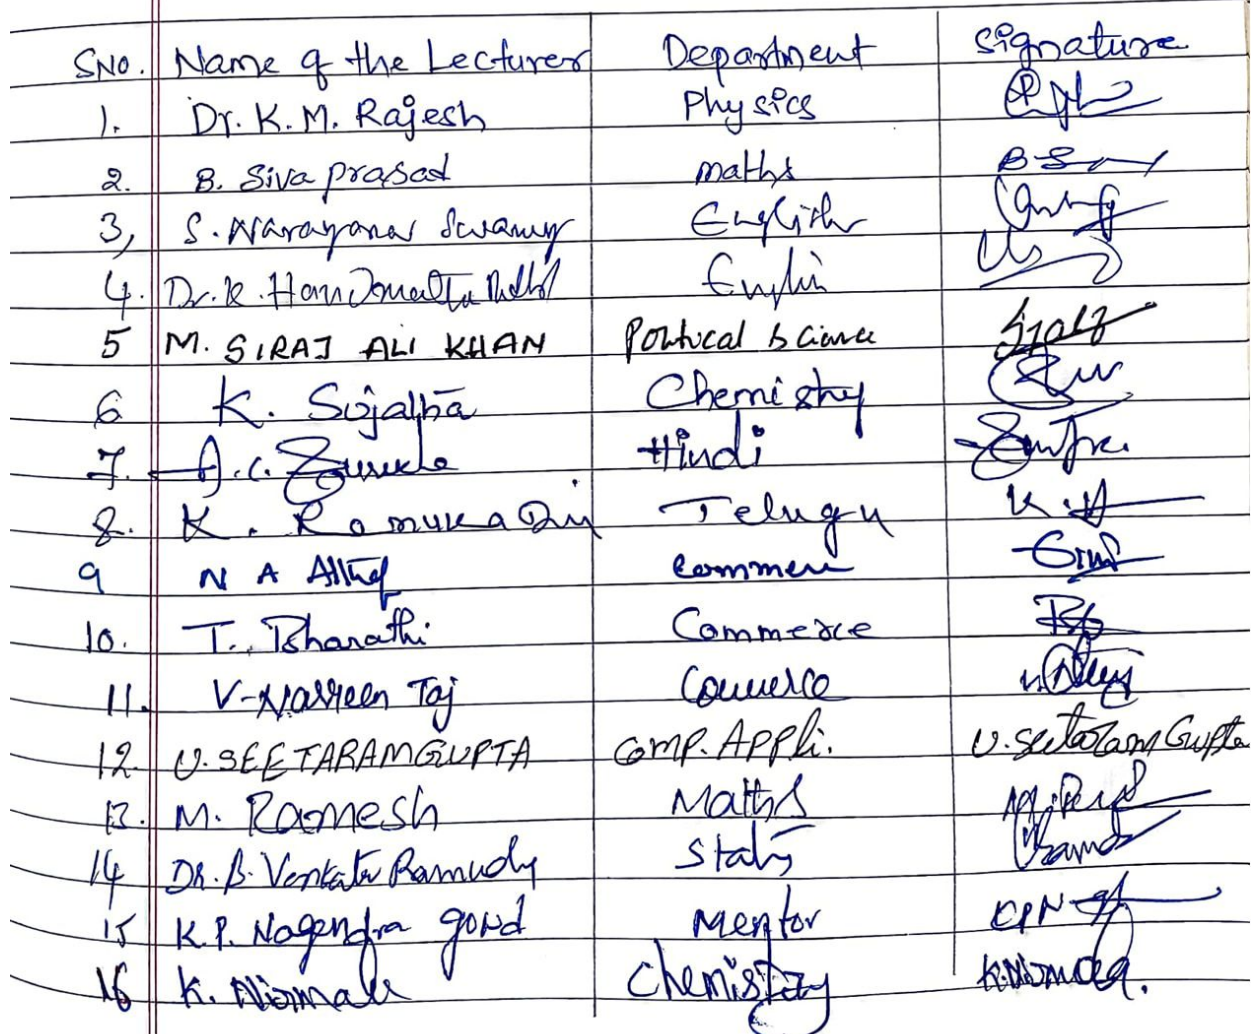 SNO. Name of the Lecturer Department Signature
1. Dr. K. M. Rajesh Physics
2. B. Siva prasad maths
3, S. Narayana Swamy English
4. Dr. K. English
5 M. SIRAJ ALI KHAN Political Science
6 K. Sojalpa Chemistry
7. A.C. Hindi
8. K. Telugu
9 N A Althaf commerce
10. T. Bharathi Commerce
11. V-Nasreen Taj Commerce
12. V. SEETARAMGUPTA comp. Appli. V. Seetaram Gupta
13. M. Ramesh Maths
14 Dr. B. Venkata Ramudu Stats
15 K.P. Nagendra goud Mentor KPN
16 K. Nirmala Chemistry K. Nirmala.